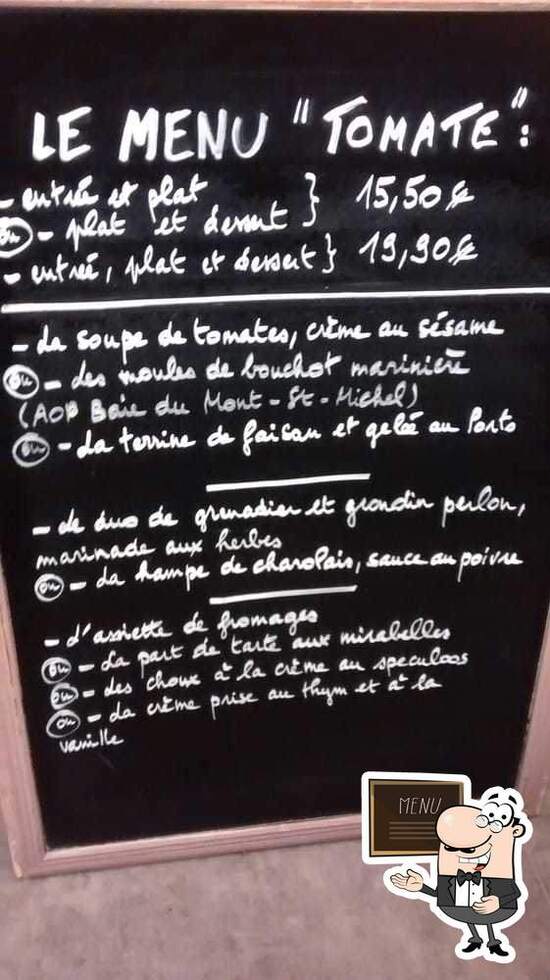 LE MENU "TOMATE":
- entrée et plat } 15,50€
ou - plat et dessert
- entrée, plat et dessert } 19,90€
- La soupe de tomates, crème au sésame
ou - des moules de bouchot marinière
(AOP Baie du Mont-St-Michel)
ou - La terrine de faisan et gelée au Porto
- Le duo de grenadier et grondin perlon,
marinade aux herbes
ou - La hampe de charolais, sauce au poivre
- L'assiette de fromages
ou - La part de tarte aux mirabelles
ou - des choux à la crème au speculoos
ou - La crème prise au thym et à la
vanille
MENU